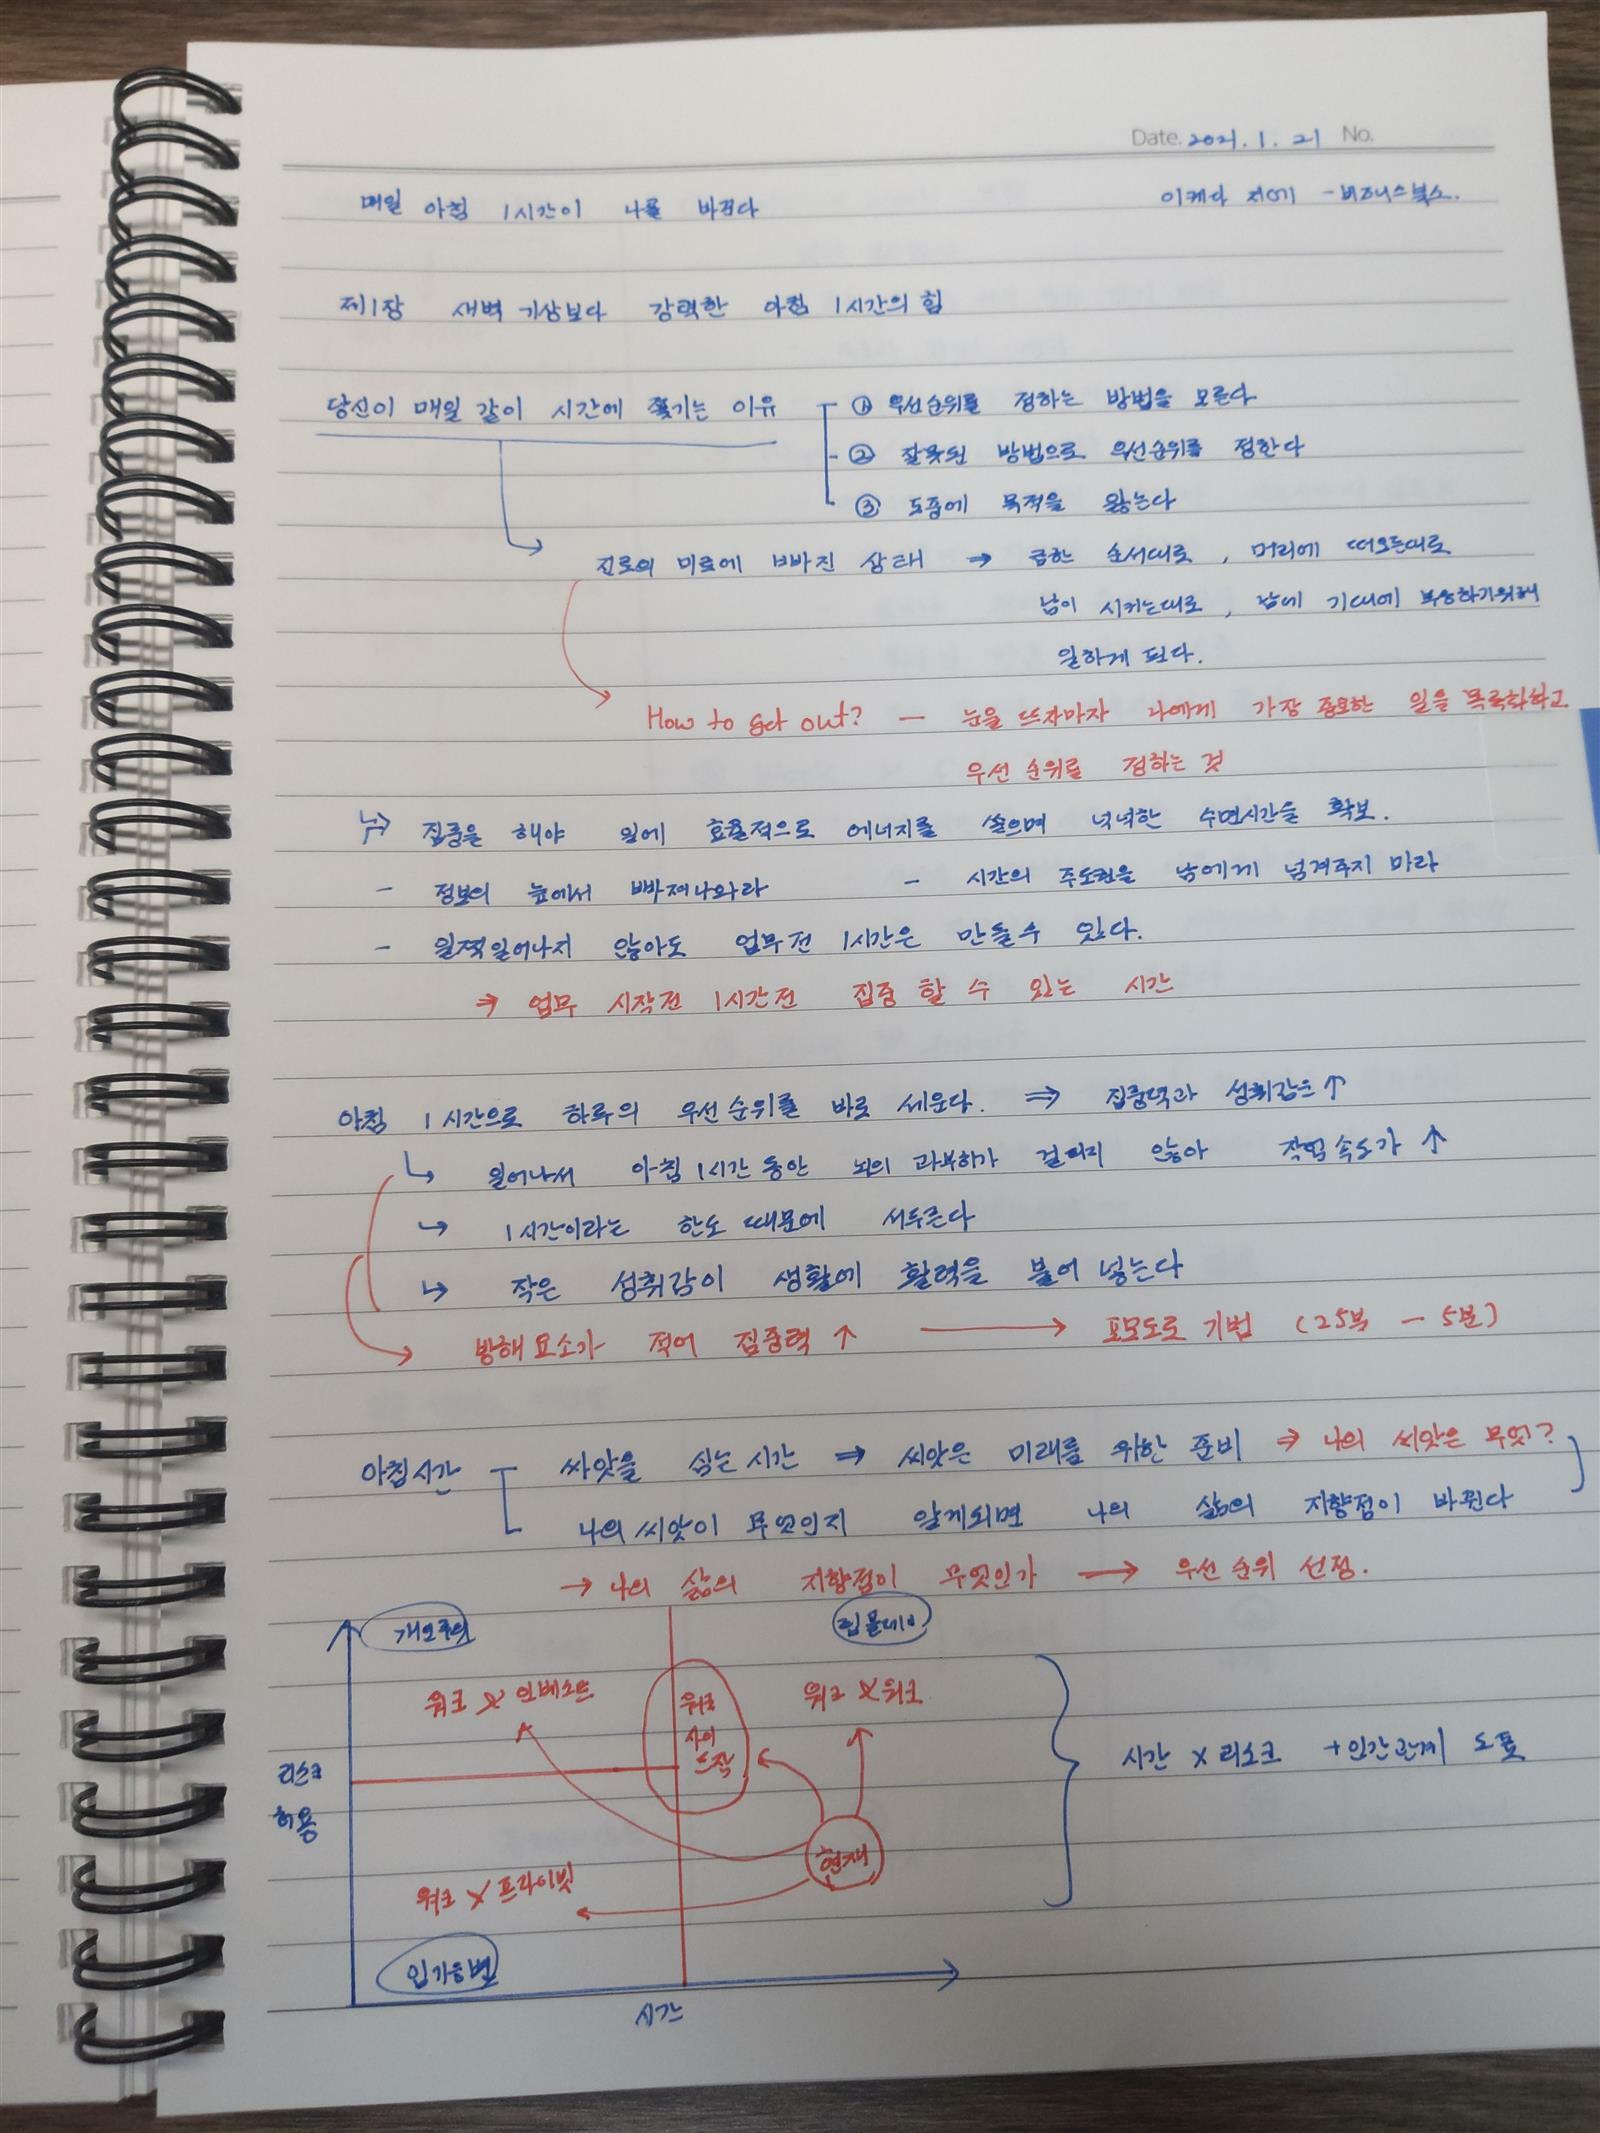 Date. 2021. 1. 21 No.
매일 아침 1시간이 나를 바꾼다 이케다 지에 - 비즈니스북스.
제1장 새벽 기상보다 강력한 아침 1시간의 힘
당신이 매일 같이 시간에 쫓기는 이유 ① 우선순위를 정하는 방법을 모른다
② 잘못된 방법으로 우선순위를 정한다
③ 도중에 목적을 잃는다
진로의 미로에 빠진 상태 → 급한 순서대로, 머리에 떠오른대로
남이 시키는대로, 기대에 부응하기위해
일하게 된다.
How to get out? — 눈을 뜨자마자 나에게 가장 중요한 일을 목록화하고
우선 순위를 정하는 것
↳ 집중을 해야 일에 효율적으로 에너지를 쏟으며 넉넉한 수면시간을 확보.
- 정보의 늪에서 빠져나와라 - 시간의 주도권을 남에게 넘겨주지 마라
- 일찍일어나지 않아도 업무전 1시간은 만들수 있다.
⇒ 업무 시작전 1시간전 집중 할 수 있는 시간
아침 1시간으로 하루의 우선순위를 바로 세운다. ⇒ 집중력과 성취감은↑
↳ 일어나서 아침 1시간 동안 뇌의 과부하가 걸리지 않아 작업속도가 ↑
↳ 1시간이라는 한도 때문에 서두른다
↳ 작은 성취감이 생활에 활력을 불어 넣는다
방해요소가 적어 집중력 ↑ → 포모도로 기법 (25분 - 5분)
아침시간 싸앗을 심는 시간 ⇒ 씨앗은 미래를 위한 준비 ⇒ 나의 씨앗은 무엇?
나의 씨앗이 무엇인지 알게되면 나의 삶의 지향점이 바뀐다
→ 나의 삶의 지향점이 무엇인가 → 우선순위 선정.
개인주의 립플데이
워크 X 인베스트 워크 사이드잡 워크 X 워크
리스크 허용 시간 x 리스크 + 인간관계 도표
현재
워크 X 프라이빗
임기응변
시간